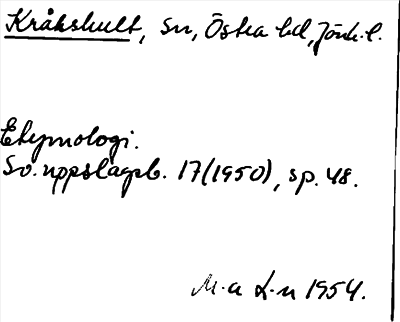 Kråkshult, sn, Östra hd, Jönk. l.
Etymologi.
Sv. uppslagsb. 17(1950), sp. 48.
M-a L-n 1954.